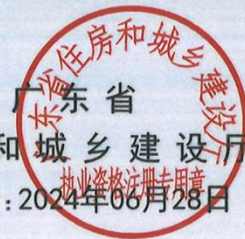 广东省住房和城乡建设厅
广东省
和城乡建设厅
执业资格注册专用章
:2024年06月28日